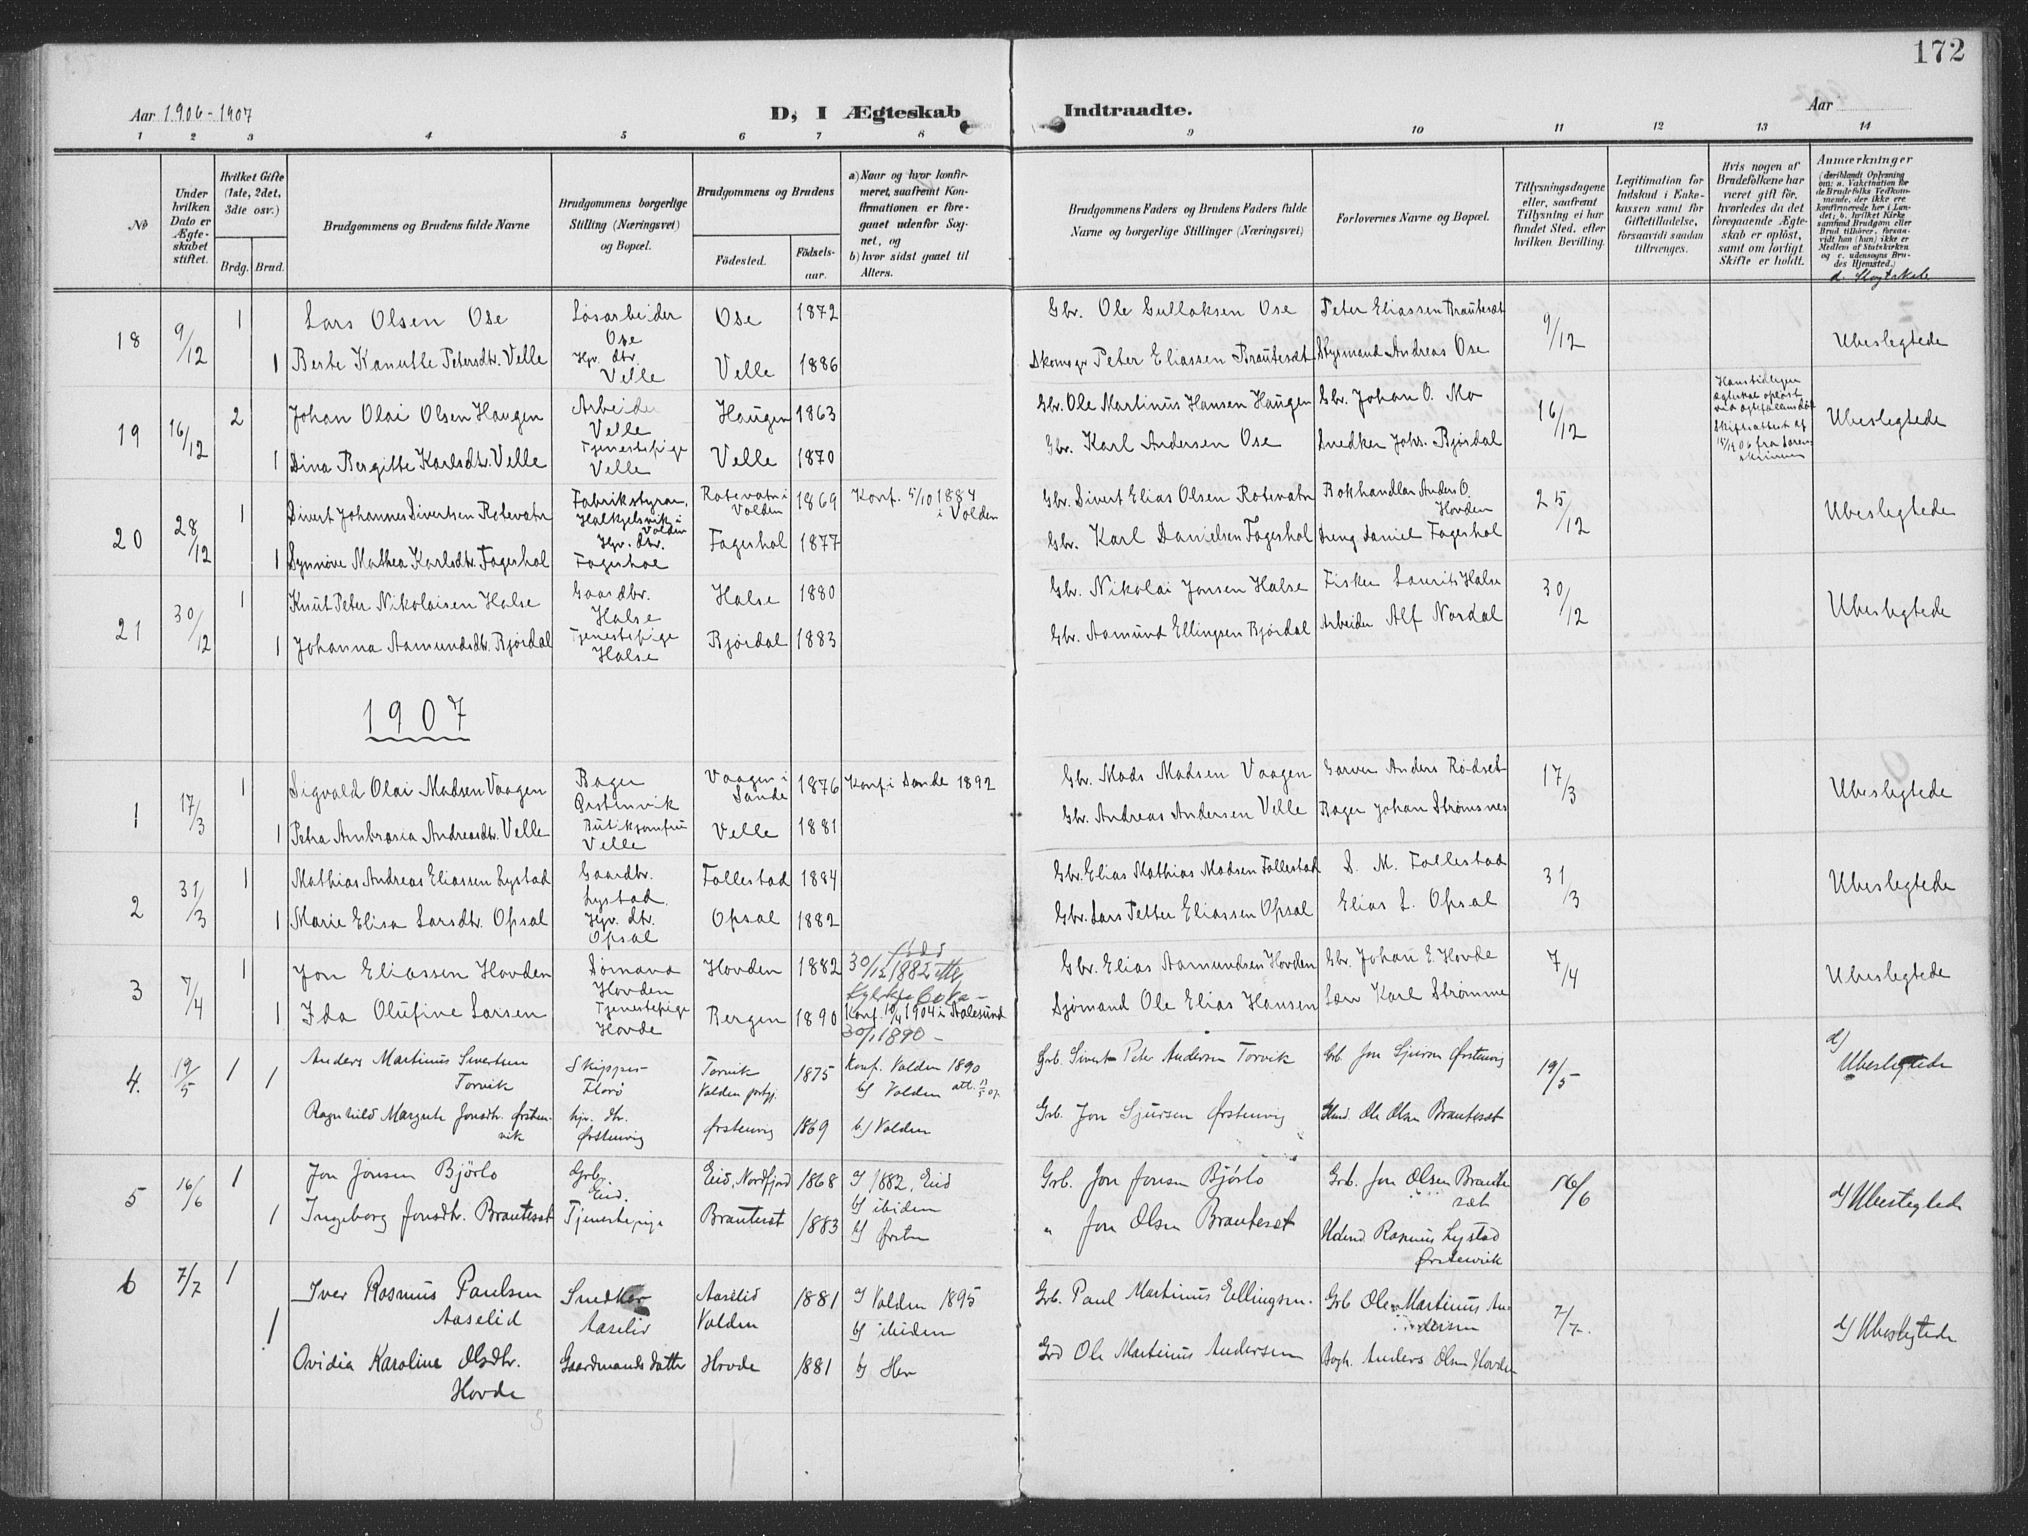 172
Aar 1906-1907
D, I Ægteskab Indtraadte.
Aar
1 2 3 4 5 6 7 8 9 10 11 12 13 14
No
Under hvilken Dato er Ægteskabet stiftet.
Hvilket Gifte (1ste, 2det, 3die osv.)
Brdg. Brud.
Brudgommens og Brudens fulde Navne
Brudgommens borgerlige Stilling (Næringsvei) og Bopæl.
Brudgommens og Brudens
Fødested.
Fødselsaar.
a) Naar og hvor konfirmeret, saafremt Konfirmationen er foregaaet udenfor Sognet, og
b) hvor sidst gaaet til Alters.
Brudgommens Faders og Brudens Faders fulde Navne og borgerlige Stillinger (Næringsvei)
Forlovernes Navne og Bopæl.
Tillysningsdagene eller, saafremt Tillysning ei har fundet Sted, efter hvilken Bevilling.
Legitimation for Indskud i Enkekassen samt for Giftetilladelse, forsaavidt saadan tiltrænges.
Hvis nogen af Brudefolkene har været gift før, hvorledes da det foregaaende Ægteskab er opløst, samt om lovligt Skifte er holdt.
Anmærkninger
(deriblandt Oplysning om: a. Vakcination for de Brudefolks Vedkommende, der ikke ere konfirmerede her i Landet; b. hvilket Kirkesamfund Brudgom eller Brud tilhører, forsaavidt han (hun) ikke er Medlem af Statskirken og c. udensogns Brudes Hjemsted.)
18 9/12 1 Lars Olsen Ose Løsarbeider Ose Ose 1872 Gbr. Ole Gullaksen Ose Peter Eliassen Brautesæt 9/12 Ubeslegtede
1 Berte Kanutte Petersdtr. Velle Gbr. dtr. Velle Velle 1886 Peter Eliassen Brautesæt Andreas Ose
19 16/12 2 Johan Olai Olsen Haugen Arbeider Velle Haugen 1863 Gbr. Ole Martinus Hansen Haugen Gbr. Johan O. Mo 16/12 Ubeslegtede
1 Dina Bergitte Karlsdtr. Velle Tjenestepige Velle Velle 1870 Gbr. Karl Andersen Ose Snedker Johs. Bjørdal
20 28/12 1 Sivert Johannes Sivertsen Rotevatn Fabrikstyrer, Halkjelsvik i Volden Rotevatn i Volden 1869 Konf. 5/10 1884 i Volden Gbr. Sivert Elias Olsen Rotevatn Bokhandler Anders O. Hovden 25/12 Ubeslegtede
1 Synnøve Mathea Karlsdtr. Fageshol Gbr. dtr. Fageshol Fageshol 1877 Gbr. Karl Danielsen Fageshol Dreng Daniel Fageshol
21 30/12 1 Knut Peter Nikolaisen Halse Gaardbr. Halse Halse 1880 Gbr. Nikolai Jonsen Halse Fisker Laurits Halse 30/12 Ubeslegtede
1 Johanna Aamundsdtr. Bjørdal Tjenestepige Halse Bjørdal 1883 Gbr. Aamund Ellingsen Bjørdal Arbeider Alf Nordal
1907
1 17/3 1 Sigvald Olai Madsen Vaagen Bager Ørstenvik Vaagen i Sande 1876 Konf i Sande 1892 Gbr. Mads Madsen Vaagen Garver Anders Rødset 17/3 Ubeslegtede
1 Petra Ambrosia Andreasdtr. Velle Butikjomfru Velle Velle 1881 Gbr. Andreas Andersen Velle Bager Johan Strømsnes
2 31/3 1 Mathias Andreas Eliassen Lystad Gaardbr. Lystad. Follestad 1884 Gbr. Elias Mathias Madsen Follestad S. M. Follestad 31/3 Ubeslegtede
1 Marie Elisa Larsdtr. Opsal Gbr. dtr. Opsal Opsal 1882 Gbr. Lars Petter Eliassen Opsal Elias L. Opsal
3 7/4 1 Jon Eliassen Hovden Sømand Hovden Hovden 1882 født 30/12 1882 Gbr. Elias Aamundsen Hovden Gbr. Johan E. Hovde 7/4 Ubeslegtede
1 Ida Olufine Larsen Tjenestepige Hovde Bergen 1890 Konf. 10/4 1904 i Aalesund 30/1 1890 Sjømand Ole Elias Hansen Lærer Karl Strømme
4. 19/5 1 Anders Martinus Sivertsen Torvik Skipper Florø Torvik Volden 1875 Konf. Volden 1890 b) Volden Grb. Sivert Peter Andersen Torvik Grb. Jon Sjursen Ørstenvig 19/5 d) Ubeslegtede
1 Ragnhild Margrete Jonsdtr. Ørstenvik Gbr. dtr. Ørstenvig Ørstenvig 1869 b) Volden Grb. Jon Sjursen Ørstenvig Ole Olsen Brautesæt
5 16/6 1 Jon Jonsen Bjørlo Grb. Eid. Eid, Nordfjord 1868 a) 1882, Eid b) ibidem Grb. Jon Jonsen Bjørlo Grb. Jon Olsen Brautesæt 16/6 d) Ubeslegtede
1 Ingeborg Jonsdtr. Brautesæt Tjenestepige Brautesæt 1883 b) Ørsten " Jon Olsen Brautesæt Rasmus Lystad Ørstenvik
6 7/7 1 Iver Rasmus Paulsen Aaselid Snedker Aaselid Aaselid Volden 1881 a) Volden 1895 b) ibidem Grb. Paul Martinus Ellingsen Grb Ole Martinus Andersen 7/7. d) Ubeslegtede
1 Ovidia Karoline Olsdtr. Hovde Gaardmandsdatter Hovde 1881 b) Her Grd Ole Martinus Andersen Anders Olsen Hovden